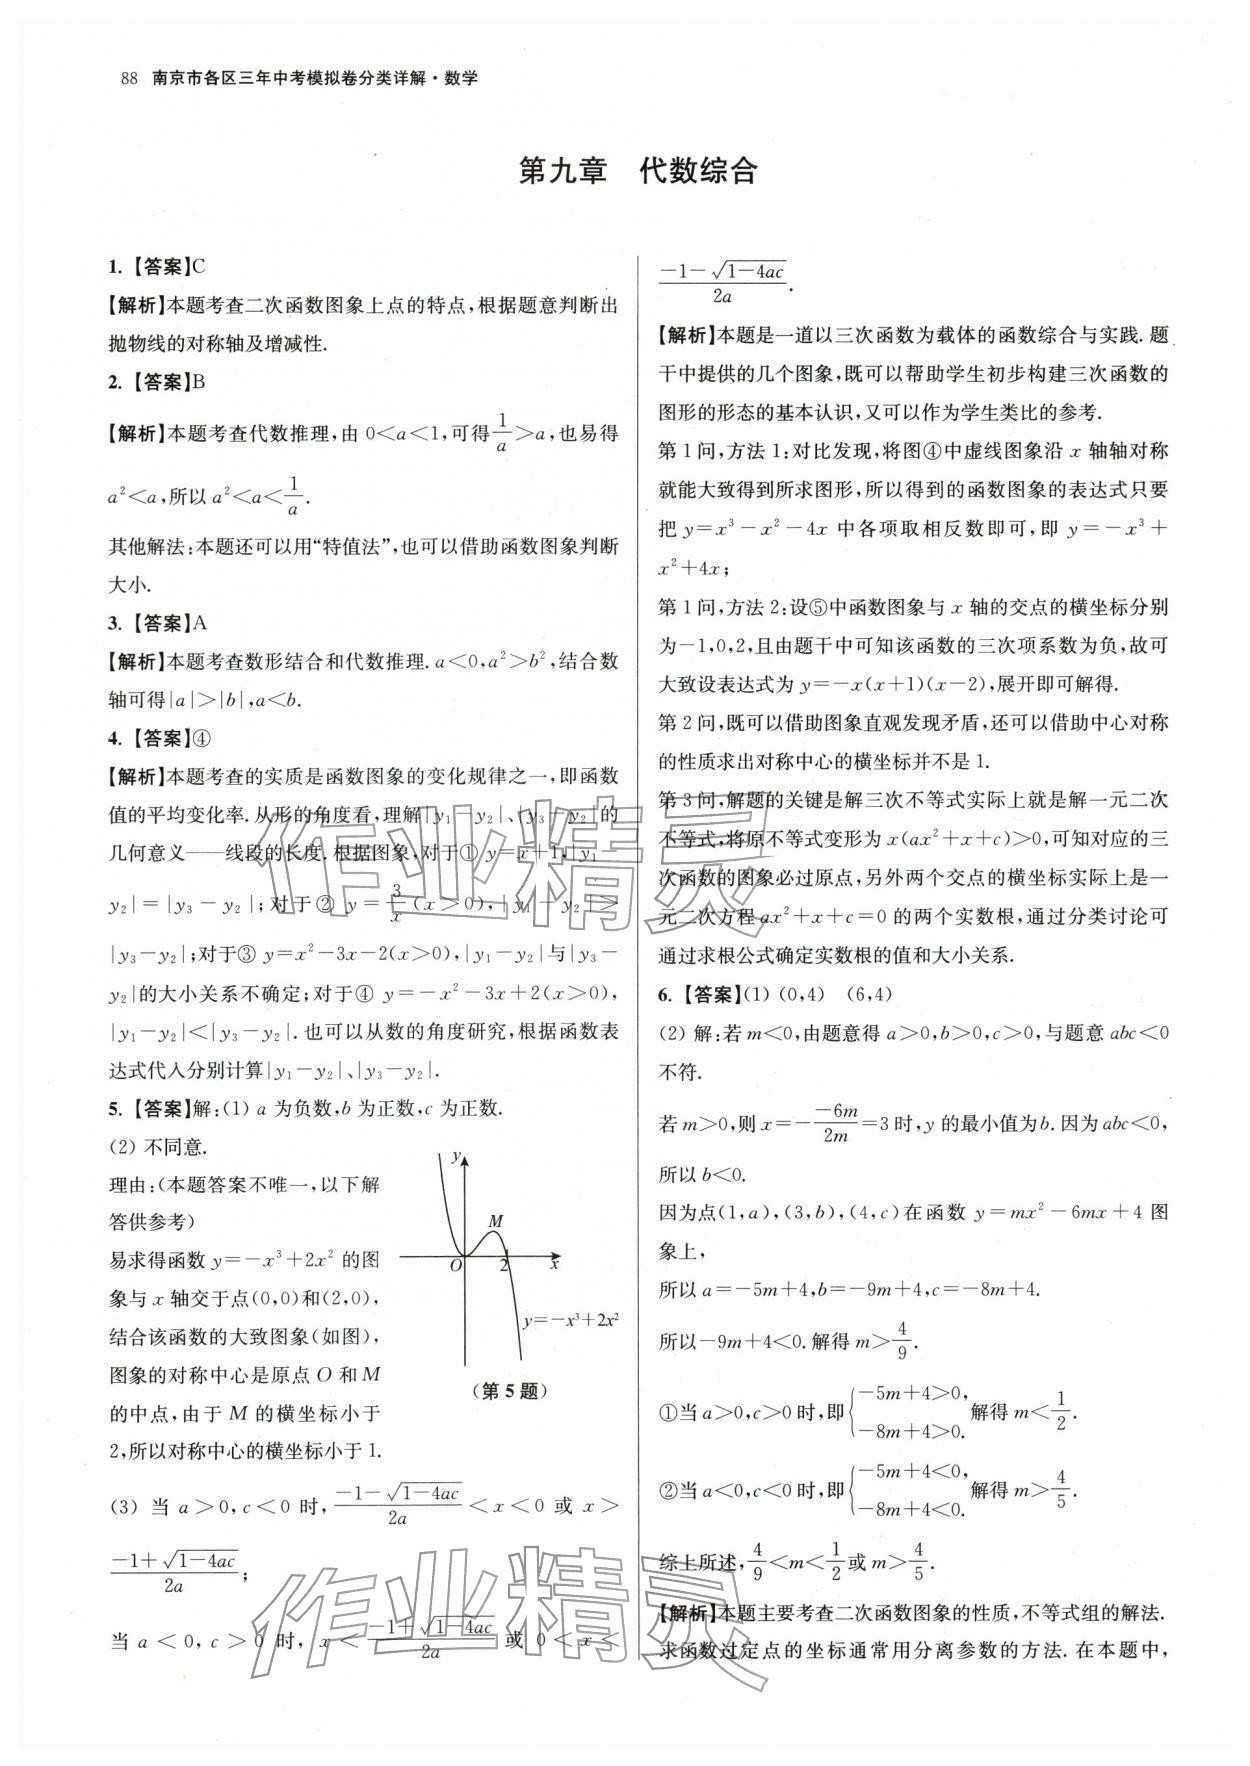 88 南京市各区三年中考模拟卷分类详解·数学
第九章 代数综合
1.【答案】C
【解析】本题考查二次函数图象上点的特点,根据题意判断出
抛物线的对称轴及增减性.
2.【答案】B
【解析】本题考查代数推理,由 0<a<1,可得1/a>a,也易得
a²<a,所以 a²<a<1/a.
其他解法:本题还可以用“特值法”,也可以借助函数图象判断
大小.
3.【答案】A
【解析】本题考查数形结合和代数推理.a<0,a²>b²,结合数
轴可得|a|>|b|,a<b.
4.【答案】④
【解析】本题考查的实质是函数图象的变化规律之一,即函数
值的平均变化率.从形的角度看,理解|y₁-y₂|、|y₃-y₂|的
几何意义——线段的长度.根据图象,对于① y=x+1,|y₁-
y₂|=|y₃-y₂|;对于② y=3/x(x>0),|y₁-y₂|>
|y₃-y₂|;对于③ y=x²-3x-2(x>0),|y₁-y₂|与|y₃-
y₂|的大小关系不确定;对于④ y=-x²-3x+2(x>0),
|y₁-y₂|<|y₃-y₂|.也可以从数的角度研究,根据函数表
达式代入分别计算|y₁-y₂|、|y₃-y₂|.
5.【答案】解:(1) a 为负数,b 为正数,c 为正数.
(2) 不同意.
理由:(本题答案不唯一,以下解
答供参考)
易求得函数 y=-x³+2x² 的图
象与 x 轴交于点(0,0)和(2,0),
结合该函数的大致图象(如图),
图象的对称中心是原点 O 和 M
的中点,由于 M 的横坐标小于
2,所以对称中心的横坐标小于 1.
y
M
O 2 x
y=-x³+2x²
(第 5 题)
(3) 当 a>0,c<0 时,(-1-√(1-4ac))/2a<x<0 或 x>
(-1+√(1-4ac))/2a;
当 a<0,c>0 时,x<(-1+√(1-4ac))/2a 或 0<x<
(-1-√(1-4ac))/2a.
【解析】本题是一道以三次函数为载体的函数综合与实践.题
干中提供的几个图象,既可以帮助学生初步构建三次函数的
图形的形态的基本认识,又可以作为学生类比的参考.
第 1 问,方法 1:对比发现,将图④中虚线图象沿 x 轴轴对称
就能大致得到所求图形,所以得到的函数图象的表达式只要
把 y=x³-x²-4x 中各项取相反数即可,即 y=-x³+
x²+4x;
第 1 问,方法 2:设⑤中函数图象与 x 轴的交点的横坐标分别
为-1,0,2,且由题干中可知该函数的三次项系数为负,故可
大致设表达式为 y=-x(x+1)(x-2),展开即可解得.
第 2 问,既可以借助图象直观发现矛盾,还可以借助中心对称
的性质求出对称中心的横坐标并不是 1.
第 3 问,解题的关键是解三次不等式实际上就是解一元二次
不等式,将原不等式变形为 x(ax²+x+c)>0,可知对应的三
次函数的图象必过原点,另外两个交点的横坐标实际上是一
元二次方程 ax²+x+c=0 的两个实数根,通过分类讨论可
通过求根公式确定实数根的值和大小关系.
6.【答案】(1) (0,4) (6,4)
(2) 解:若 m<0,由题意得 a>0,b>0,c>0,与题意 abc<0
不符.
若 m>0,则 x=-(-6m)/2m=3 时,y 的最小值为 b.因为 abc<0,
所以 b<0.
因为点(1,a),(3,b),(4,c)在函数 y=mx²-6mx+4 图
象上,
所以 a=-5m+4,b=-9m+4,c=-8m+4.
所以-9m+4<0.解得 m>4/9.
①当 a>0,c>0 时,即{-5m+4>0,-8m+4>0. 解得 m<1/2.
②当 a<0,c<0 时,即{-5m+4<0,-8m+4<0. 解得 m>4/5.
综上所述,4/9<m<1/2或 m>4/5.
【解析】本题主要考查二次函数图象的性质,不等式组的解法.
求函数过定点的坐标通常用分离参数的方法.在本题中,
作业精灵
作业精灵